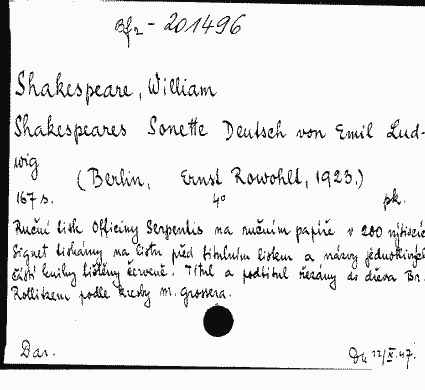 3f2 - 201496
Shakespeare, William
Shakespeares Sonette Deutsch von Emil Lud-
wig
(Berlin, Ernst Rowohlt, 1923.)
167 s. 4° pk.
Ruční tisk Officiny Serpentis na ručním papíře v 200 výtiscích
Signet tištěný na listu před titulním listem a názvy jednotlivých
částí knihy tištěny červeně. Titul a podtitul řezány do dřeva Br.
Rollitzem podle kresby M. Grossera.
Dar. Du 12/X.47.